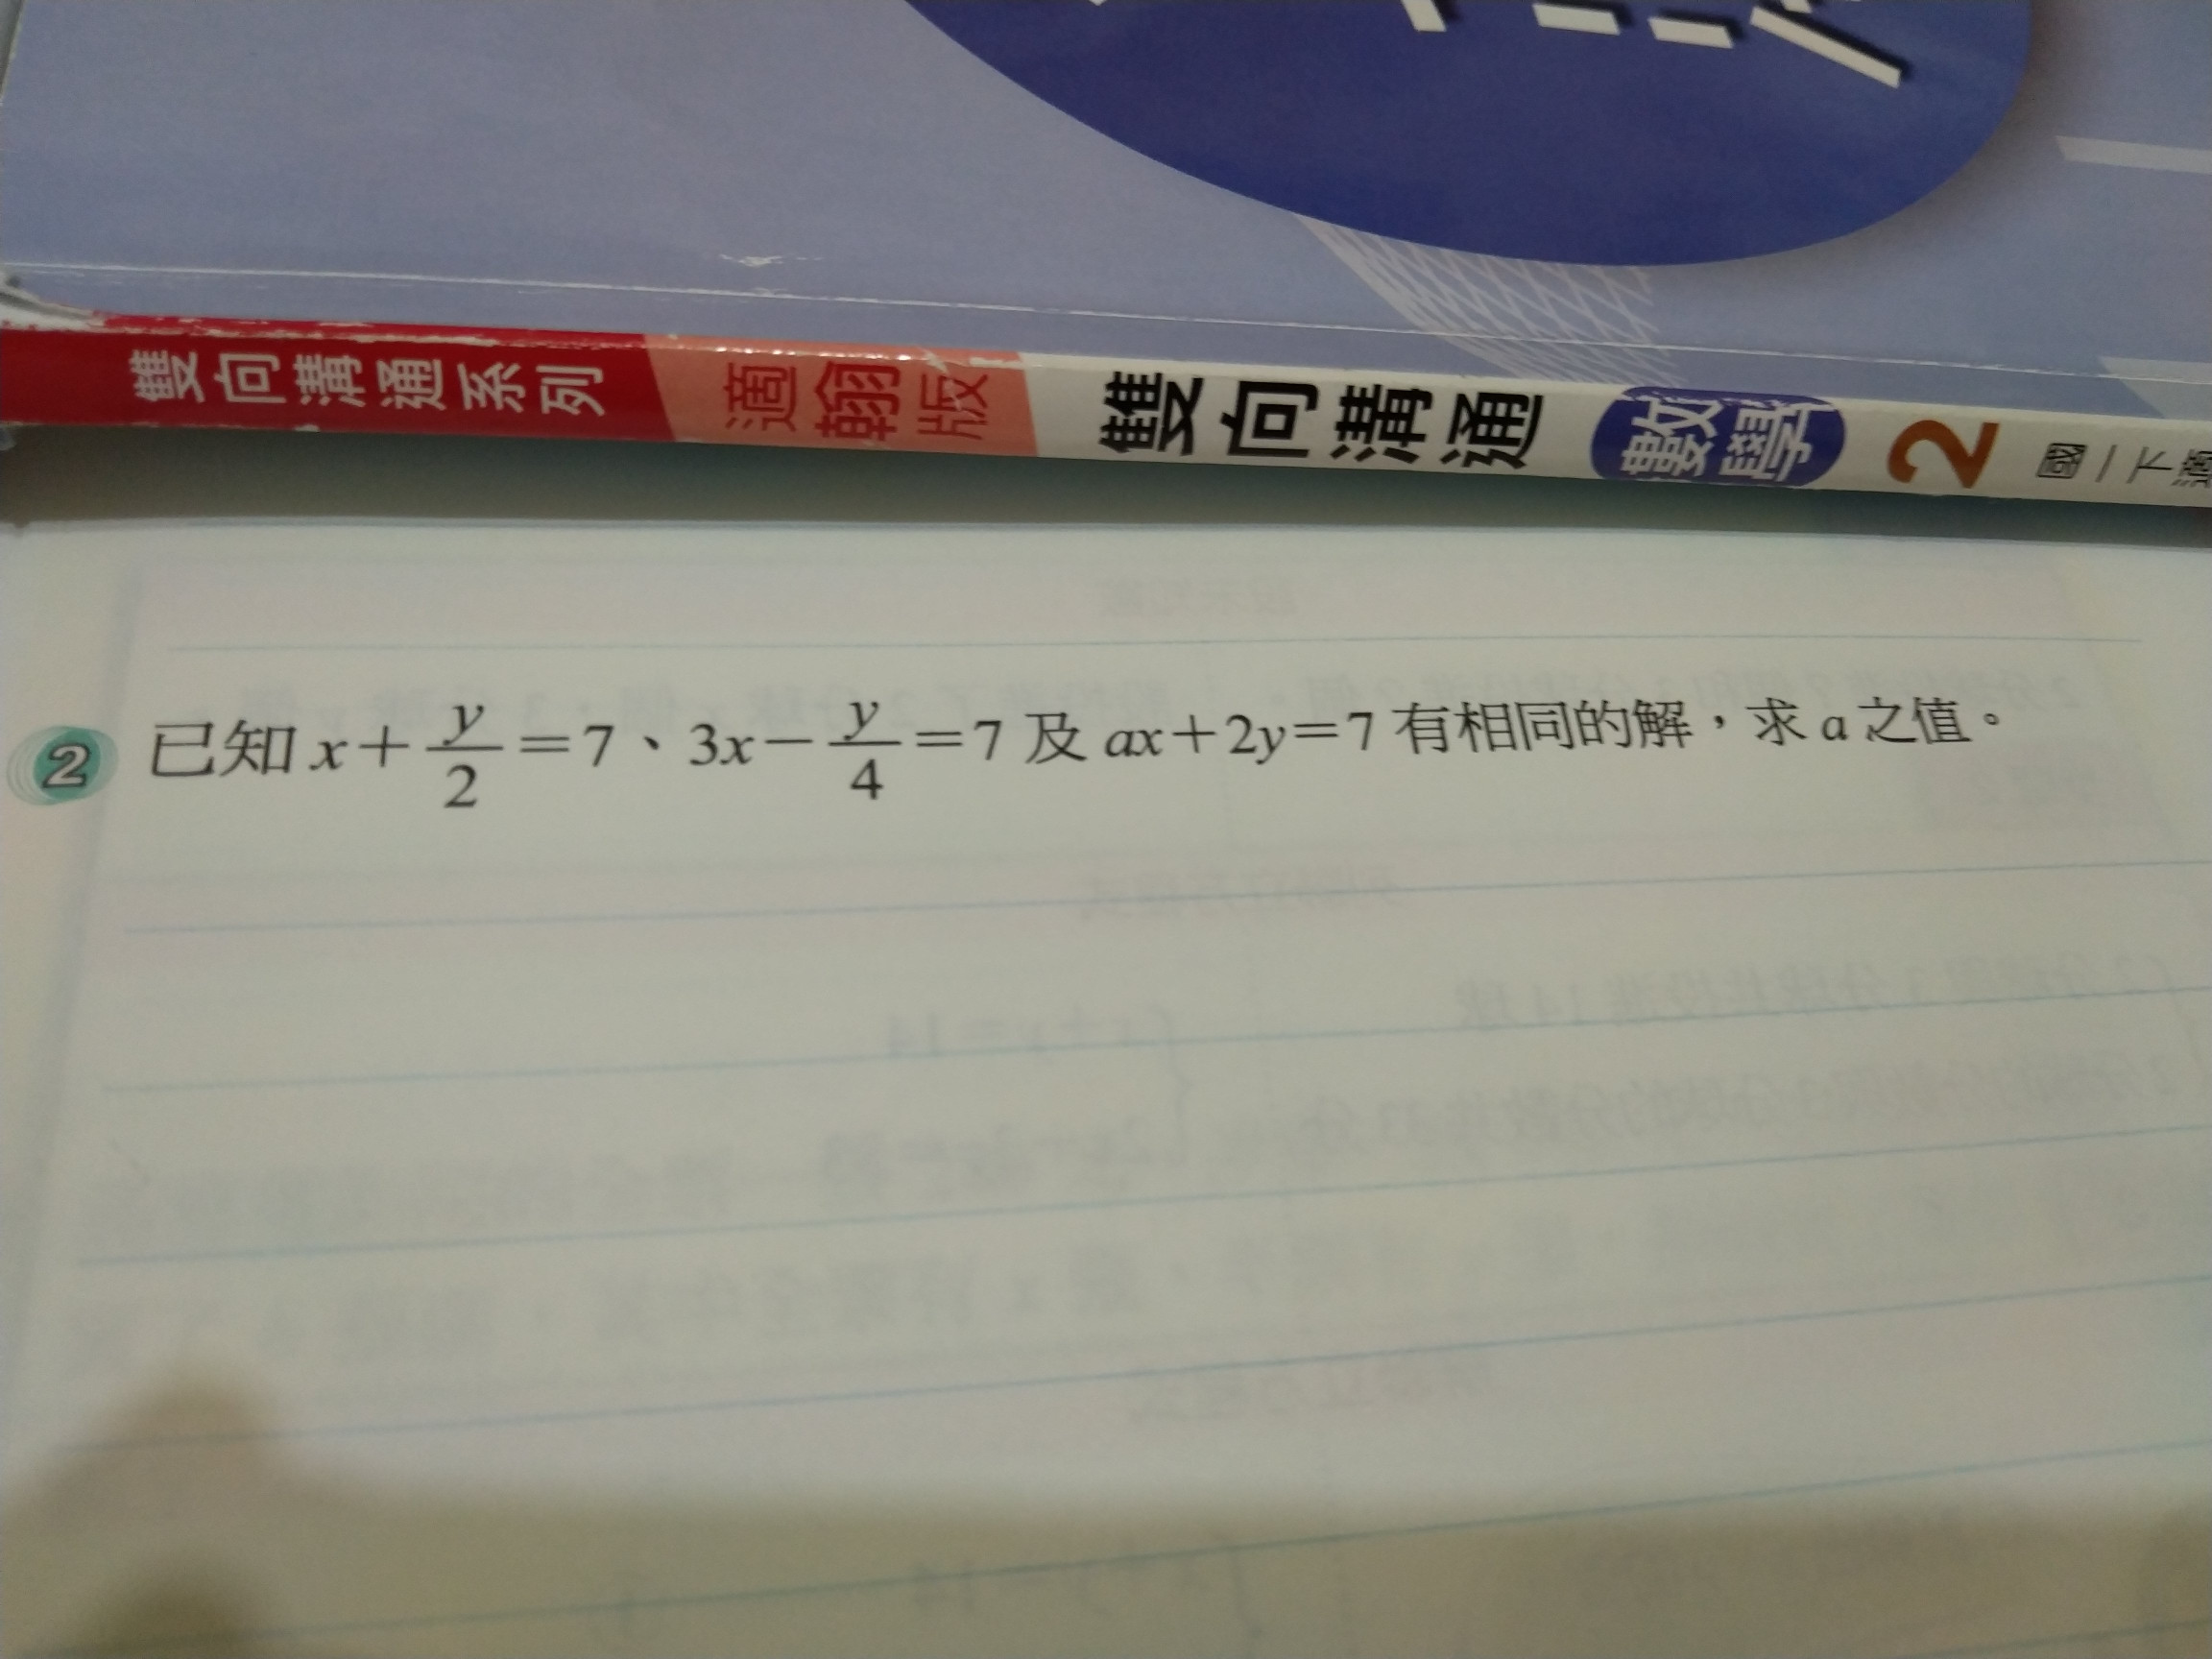 雙向溝通系列 適翰版 雙向溝通 數學 2 國一下適
2 已知 x+y/2=7、3x−y/4=7 及 ax+2y=7 有相同的解，求 a 之值。